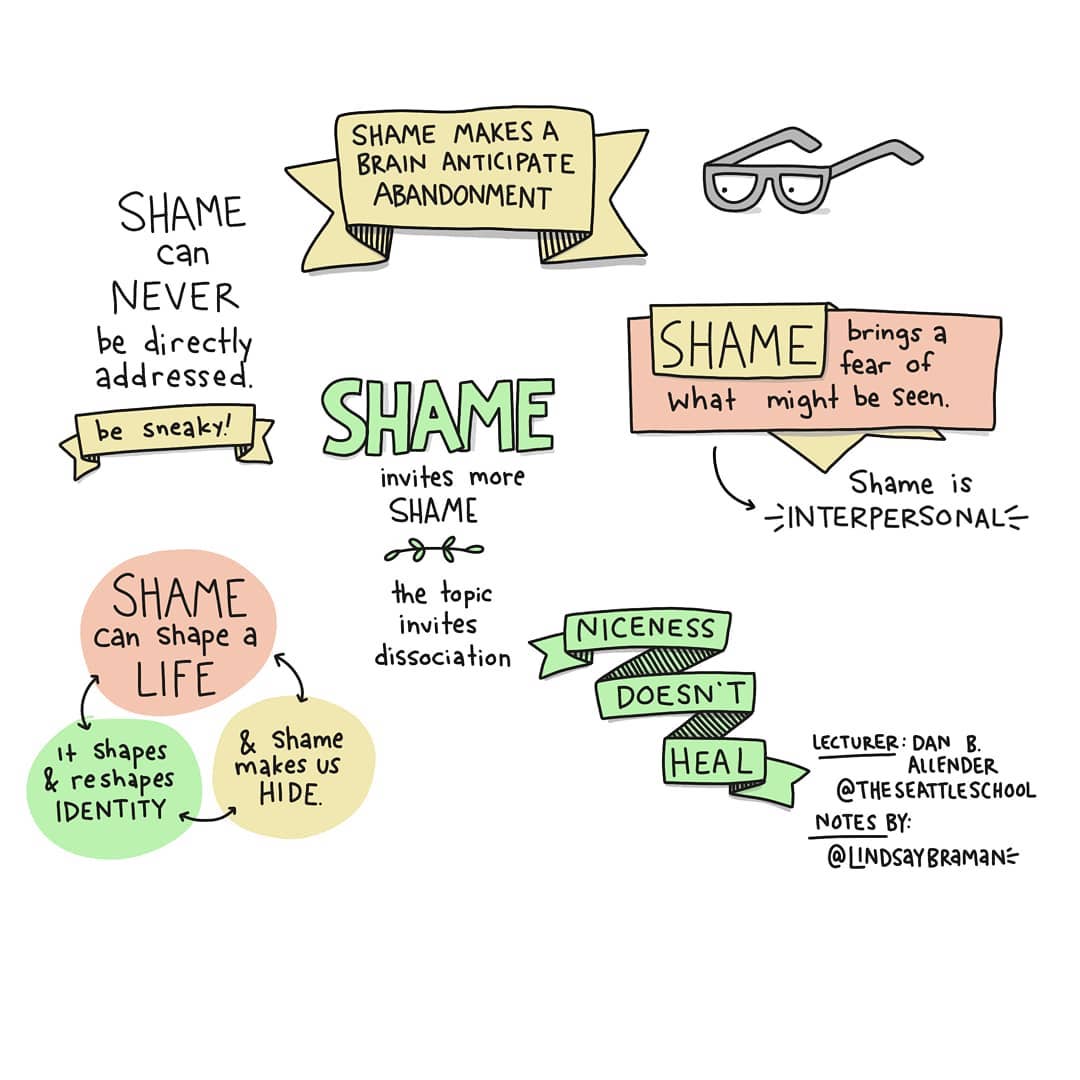 SHAME MAKES A
BRAIN ANTICIPATE
ABANDONMENT
SHAME
can
NEVER
be directly
addressed.
be sneaky!
SHAME
invites more
SHAME
the topic
invites
dissociation
SHAME brings a
fear of
what might be seen.
Shame is
INTERPERSONAL
SHAME
can shape a
LIFE
it shapes
& reshapes
IDENTITY
& shame
makes us
HIDE.
NICENESS
DOESN'T
HEAL
LECTURER: DAN B.
ALLENDER
@THESEATTLESCHOOL
NOTES BY:
@LINDSAYBRAMAN